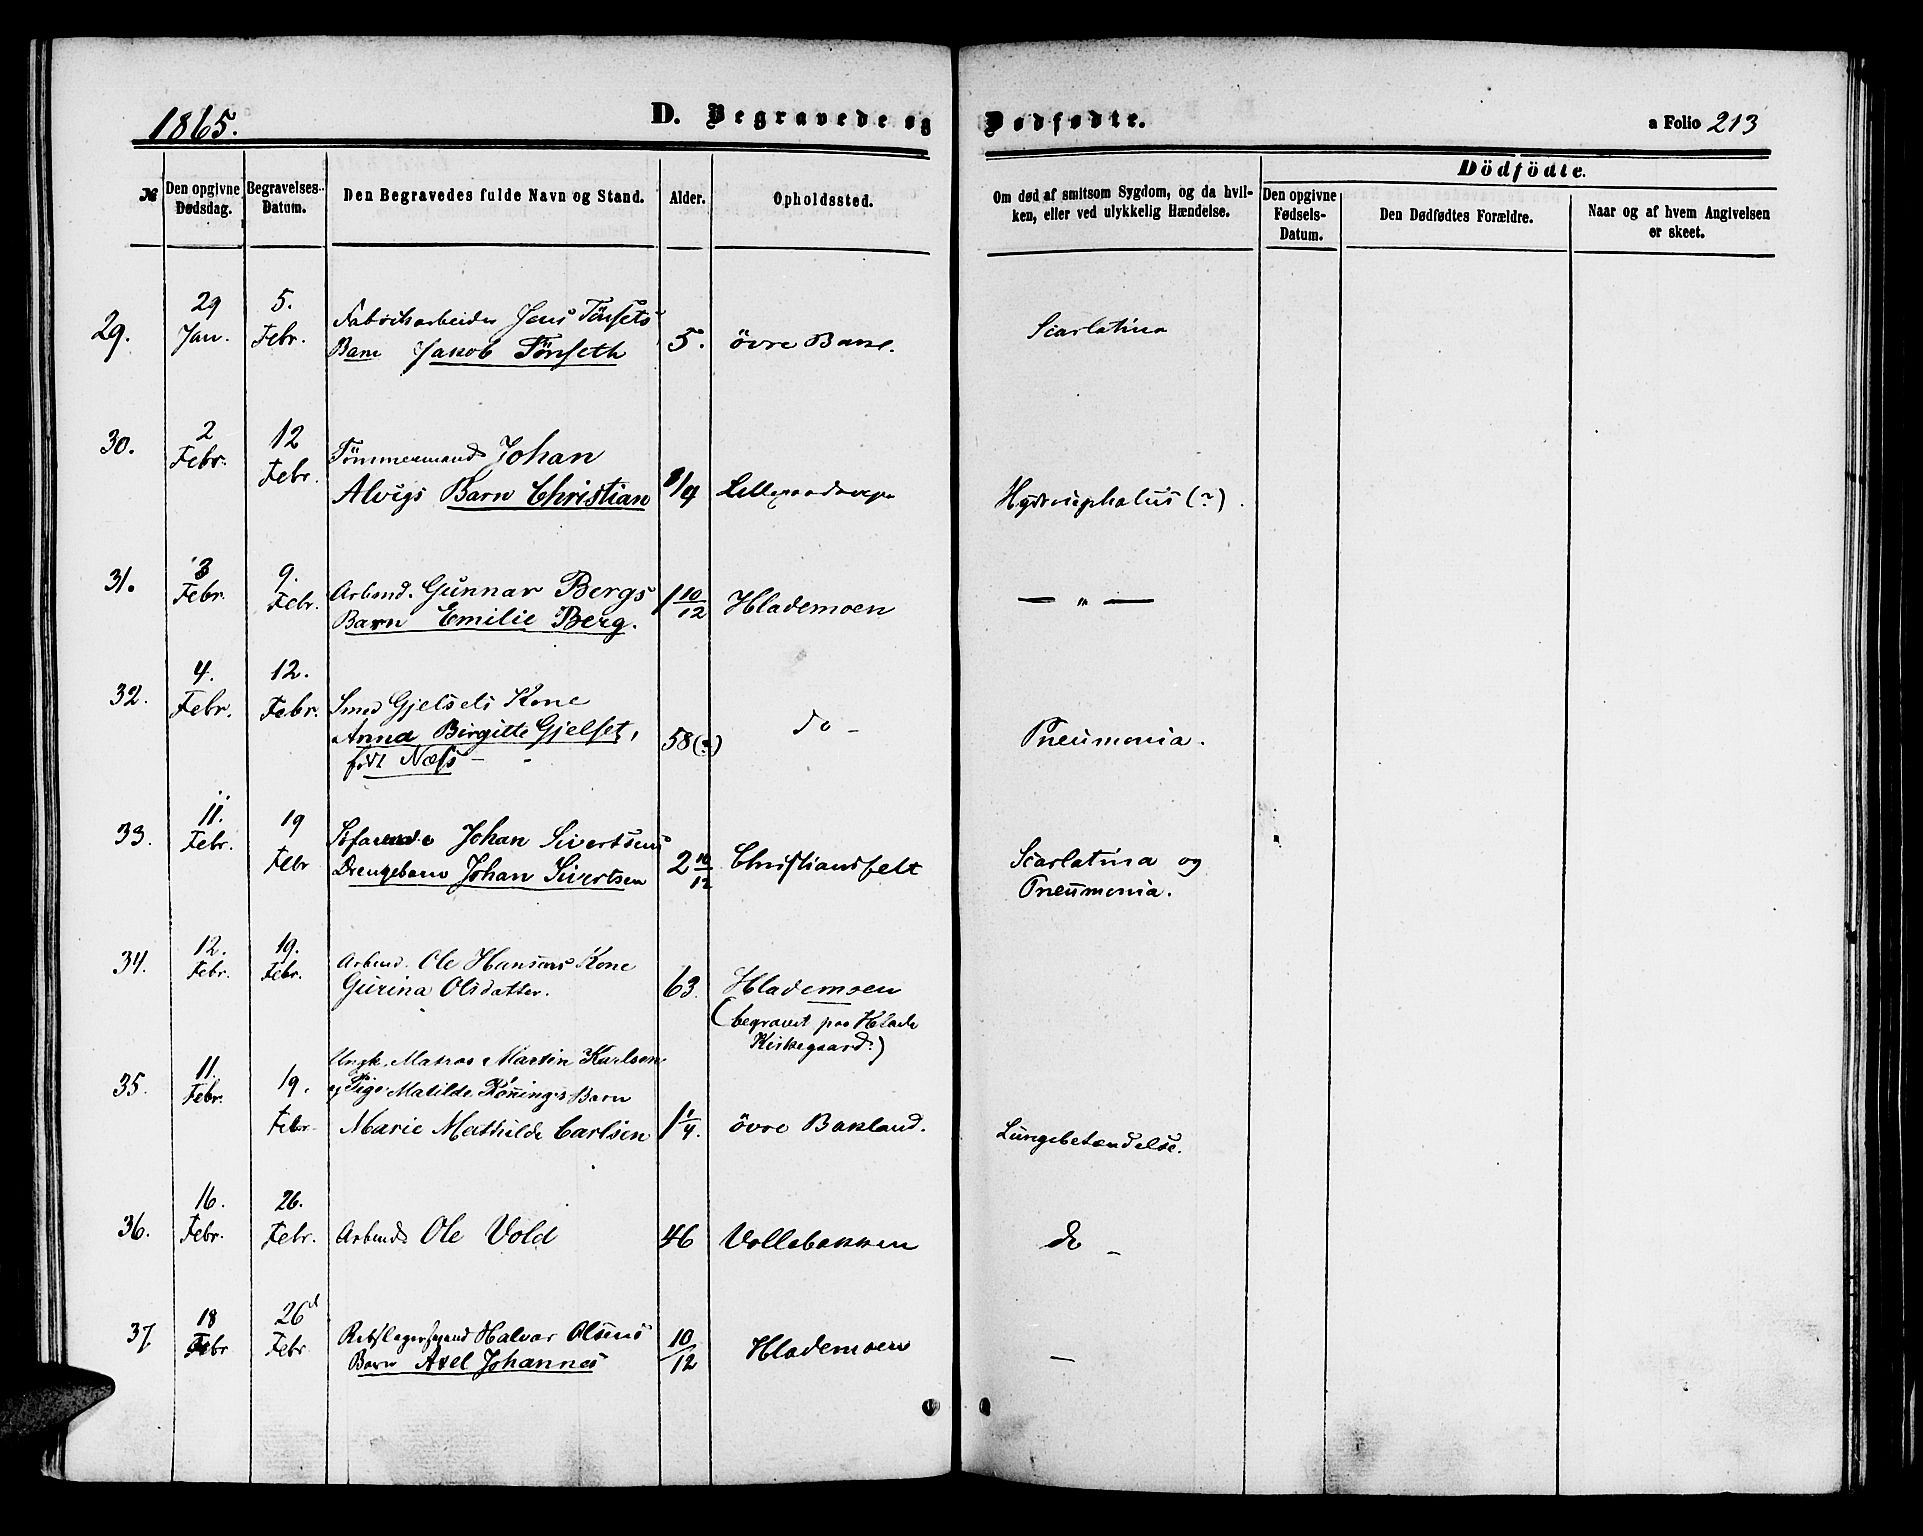 1865.
D. Begravede og Dødfødte.
a Folio 213
Dödfödte.
№
Den opgivne Dødsdag.
Begravelses-Datum.
Den Begravedes fulde Navn og Stand.
Alder.
Opholdssted.
Om død af smitsom Sygdom, og da hvilken, eller ved ulykkelig Hændelse.
Den opgivne Fødsels-Datum.
Den Dødfødtes Forældre.
Naar og af hvem Angivelsen er skeet.
29. 29 Jan. 5. Febr. Fabrikarbeider Jens Tönsets
Barn Jakob Tönseth 5. övre Bakl. Scarlatina
30. 2 Febr. 12 Febr. Tömmermand Johan
Alvigs Barn Christian 3/4 Hydrocephalus (?).
31. 3 Febr. 9. Febr. Arbmd. Gunnar Bergs
Barn Emilie Berg. 1 10/12 Hlademoen — " —
32. 4. Febr. 12. Febr. Smed Gjelsets Kone
Anna Birgitte Gjelset,
født Næss 58 (?) do - Pneumonia.
33. 11. Febr. 19 Febr Söfarende Johan Sivertsens
Drengebarn Johan Sivertsen 2 10/12 Christiansfelt Scarlatina og
Pneumonia.
34. 12. Febr. 19. Febr. Arbmd. Ole Hansens Kone
Gurina Olsdatter. 63. Hlademoen
(begravet paa Hlade
Kirkegaard.)
35. 11. Febr. 19. Febr. Ungk. Matros Martin Karlsen
og Pige Matilde Könings Barn
Marie Mathilde Carlsen 1 1/4. övre Bakland. Lungebetændelse.
36. 16. Febr. 26. Febr. Arbmd Ole Vold 46 Vollabakken do -
37 18 Febr 26d Febr Rebslagersvend Halvor Olsens
Barn Axel Johannes 10/12 Hlademoen —